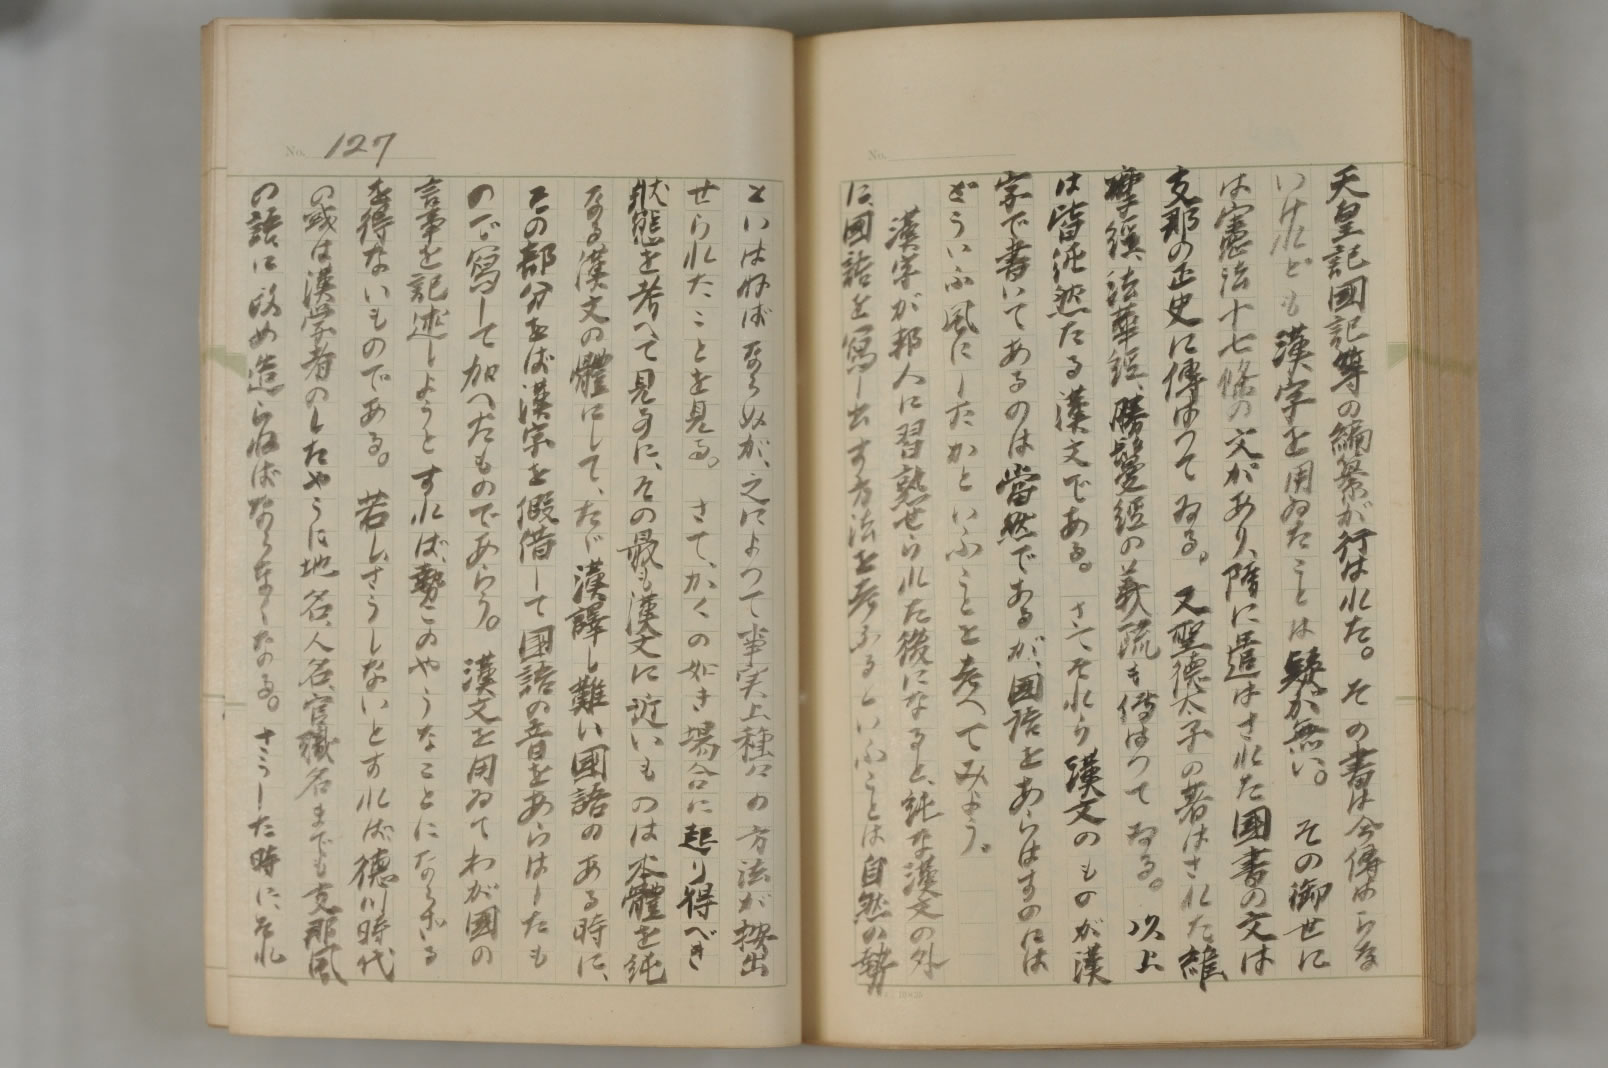 天皇記國記等の編纂が行はれた。その書は今傳はらな
いけれども漢字を用ゐたことは疑が無い。その御世に
は憲法十七條の文があり、隋に遣はされた國書の文は
支那の正史に傳はつてゐる。又聖德太子の著はされた維
摩經、法華經、勝鬘經の義疏も傳はつてゐる。以上
は皆純然たる漢文である。さて、それら漢文のものが漢
字で書いてあるのは當然であるが、國語をあらはすのには
どういふ風にしたかといふことを考へてみよう。
漢字が邦人に習熟せられた後になると、純な漢文の外
に、國語を寫し出す方法を考ふるといふことは自然の勢
No.
No. 127
といはねばならぬが、之によつて事実上種々の方法が按出
せられたことを見る。さて、かくの如き場合に起り得べき
狀態を考へて見るに、その最も漢文に近いものは大體を純
なる漢文の體にして、たゞ漢譯し難い國語のある時に、
その部分をば漢字を假借して國語の音をあらはしたも
ので寫して加へたものであらう。漢文を用ゐてわが國の
言事を記述しようとすれば、勢このやうなことにならざる
を得ないものである。若しさうしないとすれば德川時代
の或は漢學者のしたやうに地名、人名、官職名までも支那風
の語に改め造らねばならなくなる。さうした時に、それ